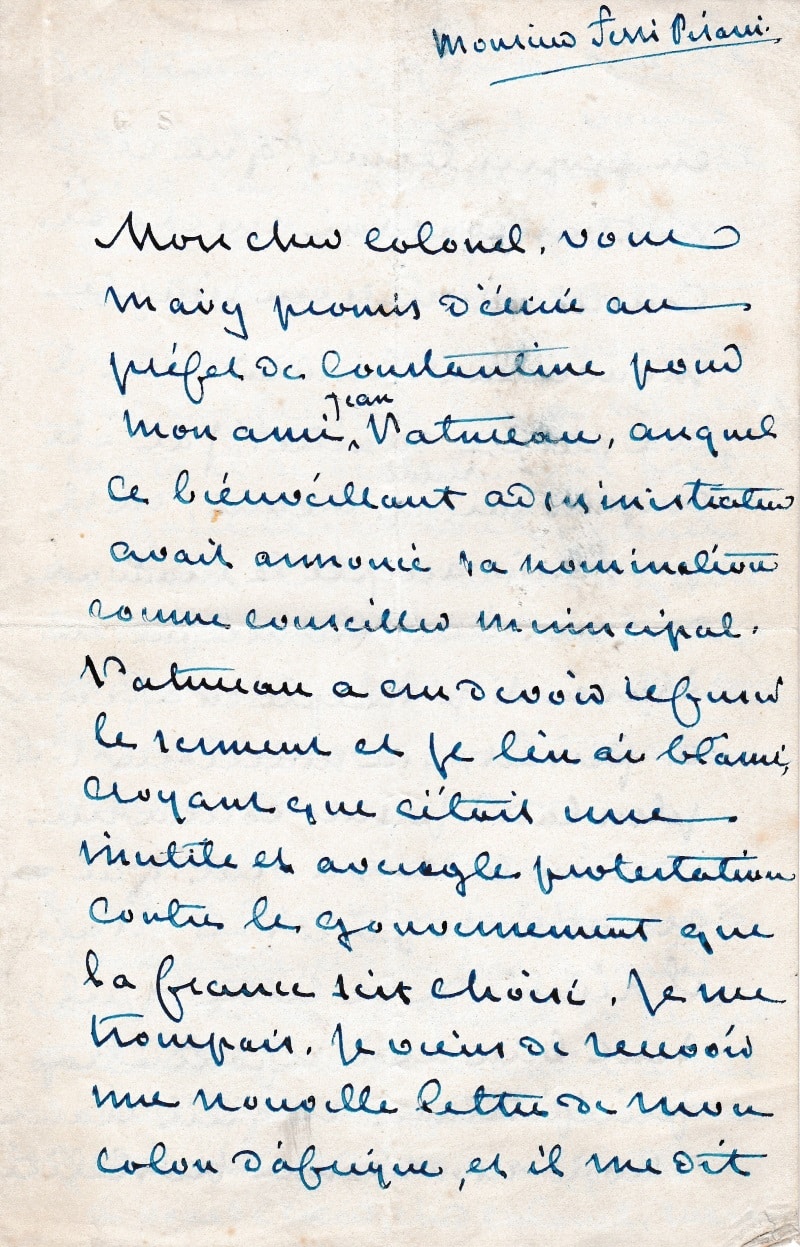 Monsieur Ferri Pisani.
Mon cher colonel, vous
m'avez promis d'écrire au
préfet de Constantine pour
jean
mon ami Patureau, auquel
ce bienveillant administrateur
avait annoncé sa nomination
comme conseiller municipal.
Patureau a cru devoir refuser
le serment et je l'en ai blamé,
croyant que c'était une
inutile et aveugle protestation
contre le gouvernement que
la france s'est choisi. Je me
trompais. Je viens de recevoir
une nouvelle lettre de mon
colon d'afrique, et il me dit